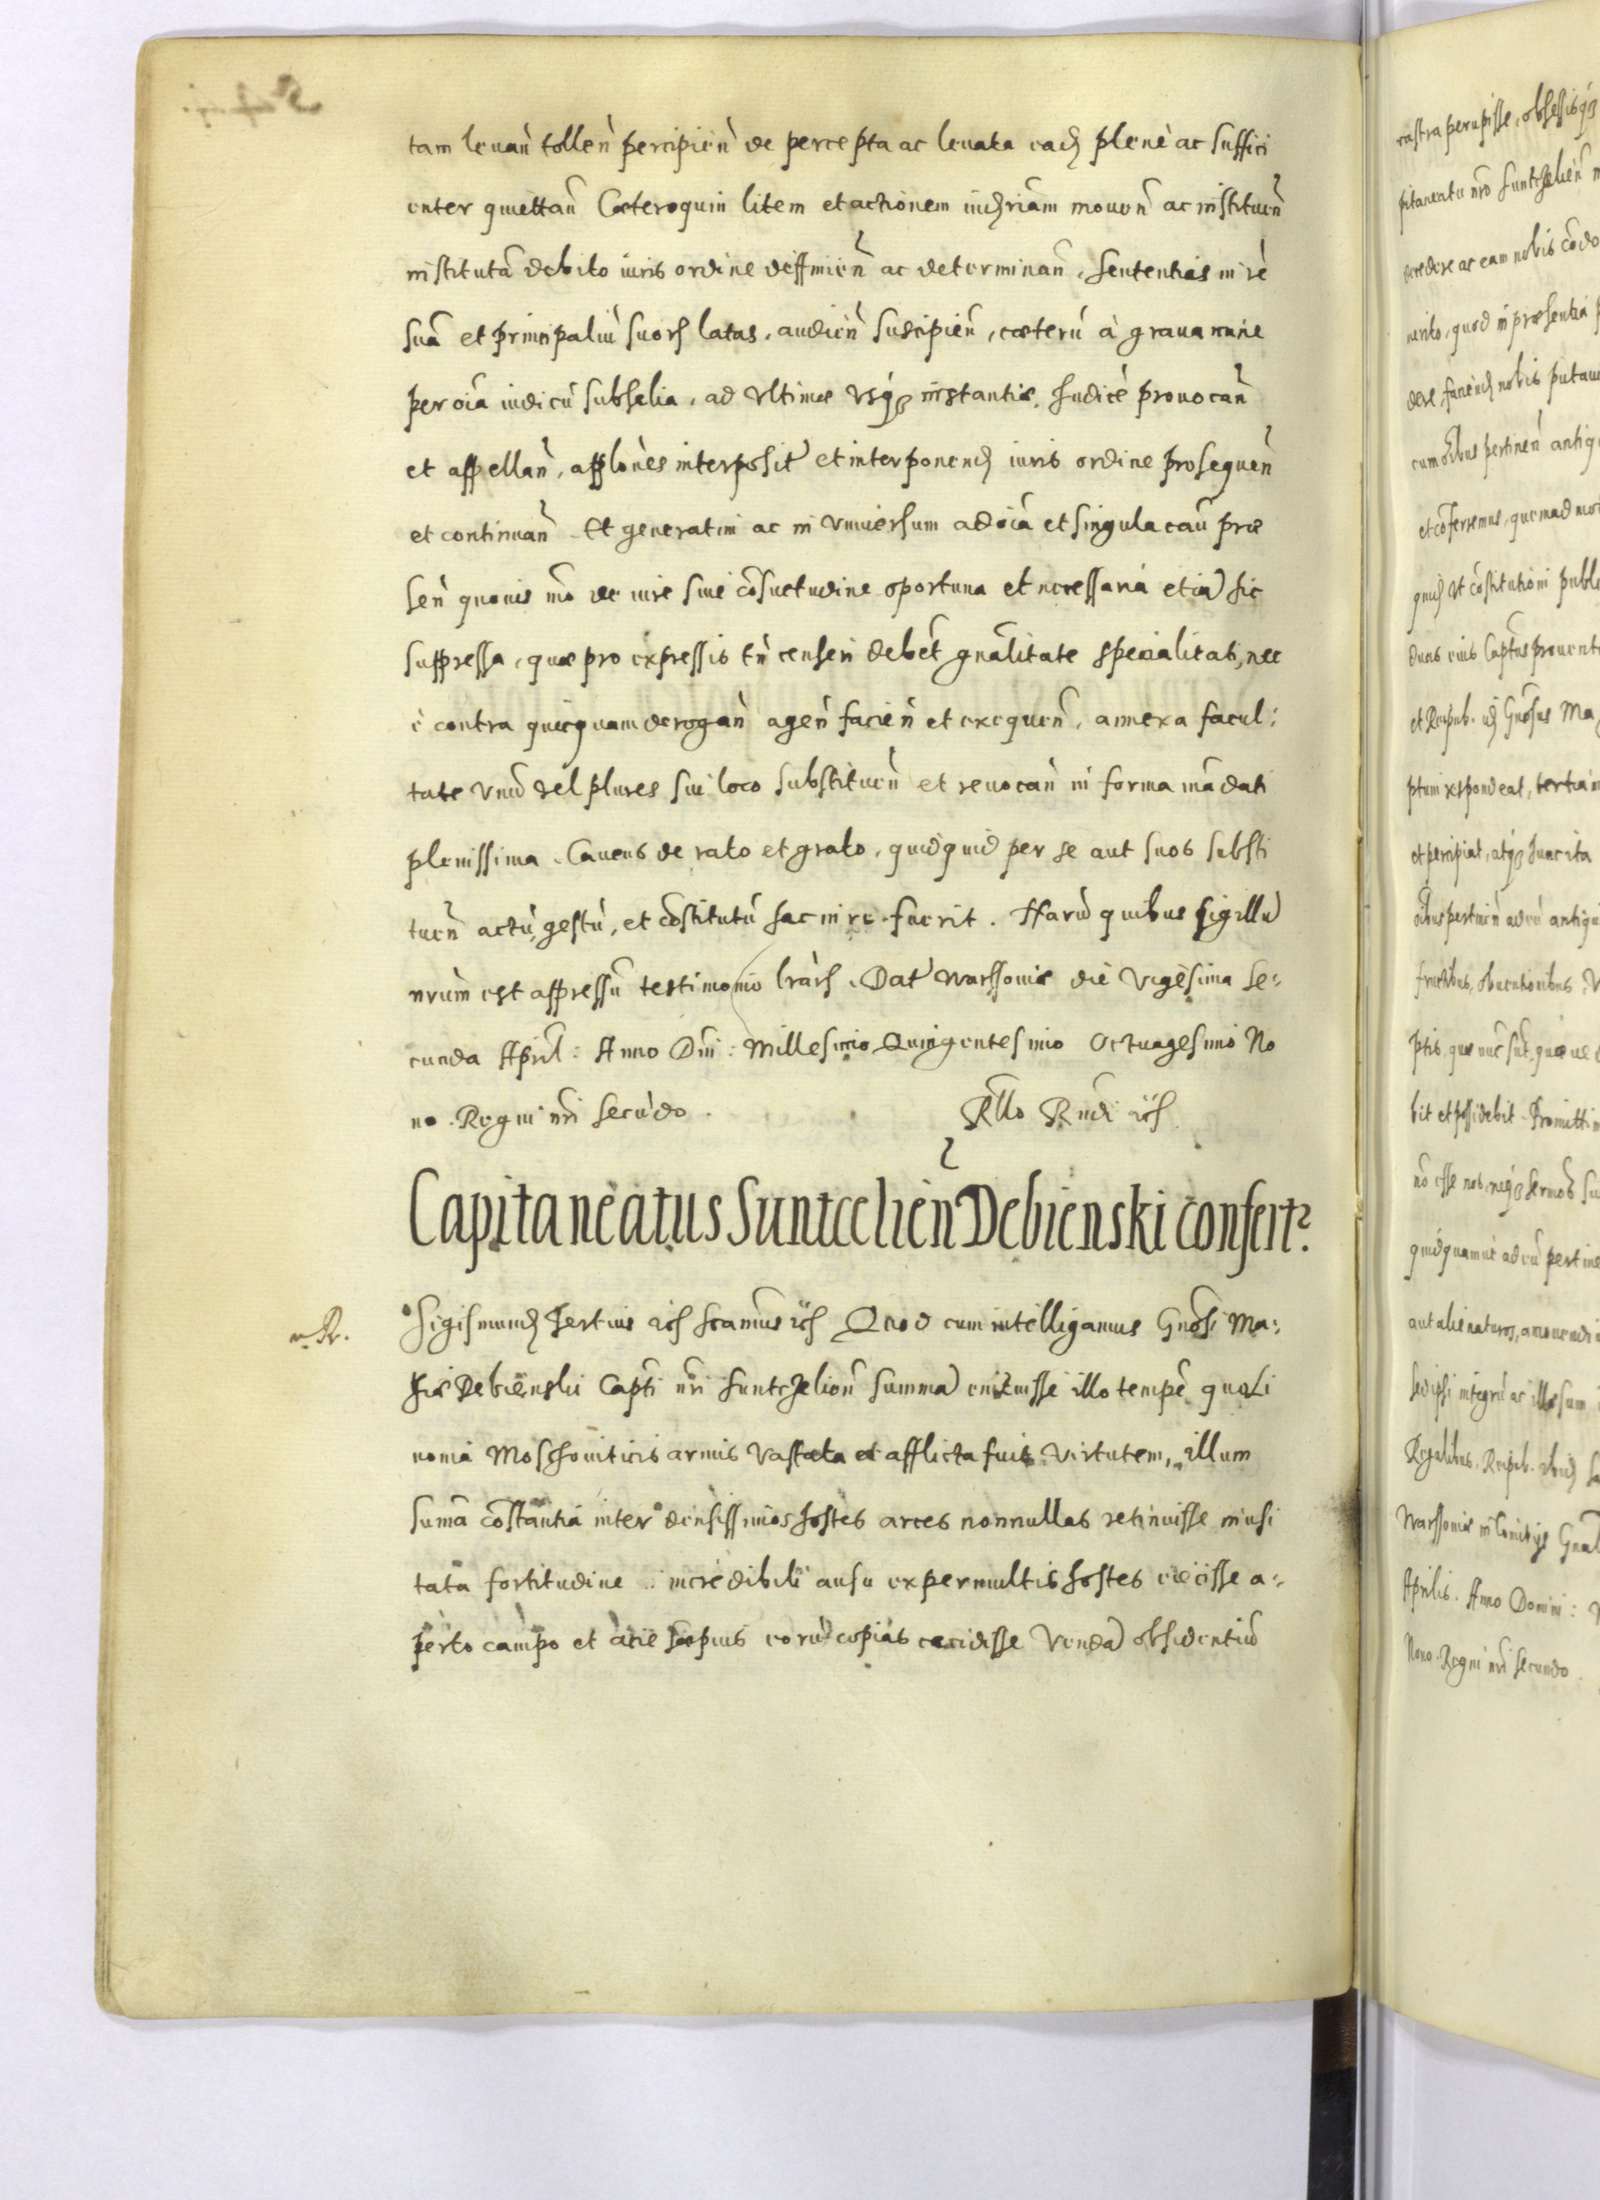 tam levan̄ tollen̄ percipien̄ de percepta ac levata ead. plenè ac suffici
enter quiettan̄ Cæteroquin litem et actionem iud.riam moven̄ ac instituen̄
institutā debito iuris ordine deffinien̄ ac determinan̄, Sententias in rē
suā et principaliū suorꝝ latas, audien̄ suscipien̄, cæterū à gravamine
per oīa iudicū subselia, ad ultimæ usqꝫ instantiæ Iudicē provocan̄
et appellan̄, applōnes interposit et interponend. iuris ordine prosequen̄
et continuan̄ Et generatim ac in universum ad oīa et singula eām præ
sēn quovis mō de iure sive cōsuetudine oportuna et necessaria etiā hic
suppressa, quæ pro expressis tn̄ censeri debēt gnālitate specialitati, nec
è contra quicquam derogan̄ agen̄ facien̄ et exequen̄, annexa facul:
tate unū vel plures sui loco substituen̄ et revocan̄ in forma mādati
plenissima. Cavens de rato et grato, quidquid per se aut suos substi
tuen̄ actū, gestū, et cōstitutū hac in re fuerit. Harū quibus sigillū
nrūm est appressū testimonio lrārꝝ. Dat Warssoviæ die vigesima se:
cunda April: Anno Dni: Millesimo Quingentesimo Octuagesimo No
no. Regni nri secūdo.
Rllo Rndi rꝝ
Capitaneatus Suntcelien̄ Debienski confert.
R.
Sigismund. Tertius rꝝ scamus rꝝ Quod cum intelligamus Gnōsi Ma:
Debienski Capti nri Suntzelien̄ summā enituisse illo tempē quo Li
vonia Moschoviticis armis vastata et afflicta fuit virtutem, illum
summa cōstantia inter densissimos hostes arces nonnullas retinuisse inusi
tata fortitudine incredibili ausu ex permultis hostes eiecisse a:
perto campo et acie sæpius eorū copias cecidisse Vendā obsidentiū
castra perrupisse, obsessisqꝫ
pitaneatu nrō Suntzelien̄
cedere ac eam nobis
merito, quod in præsentia
dere, faciend. nobis putav
cum oībus pertinen̄ antiqu
et cōferremus, quemadmod
ut cōstitutioni publ
duas eius Captus provent
et Reipub. Gnōsus Ma
ptum respondeat, tertiā
et percipiat, atqꝫ hunc ita
oībus pertinen̄ ad eū antiqu
fructibus, obventionibus
ptis, quæ nūc sūt, quæ ve
bit et possidebit. Promitti
nō esse nos, neqꝫ sermos̄ su
quidquam ut ad eū pertine
aut alienaturos, amovendi
sed ipsi integrū ac illæsum
Regalibus. Reipub.
Warssoviæ in Comitijs Gnāl
Aprilis. Anno Domini:
Nono. Regni nri secundo.